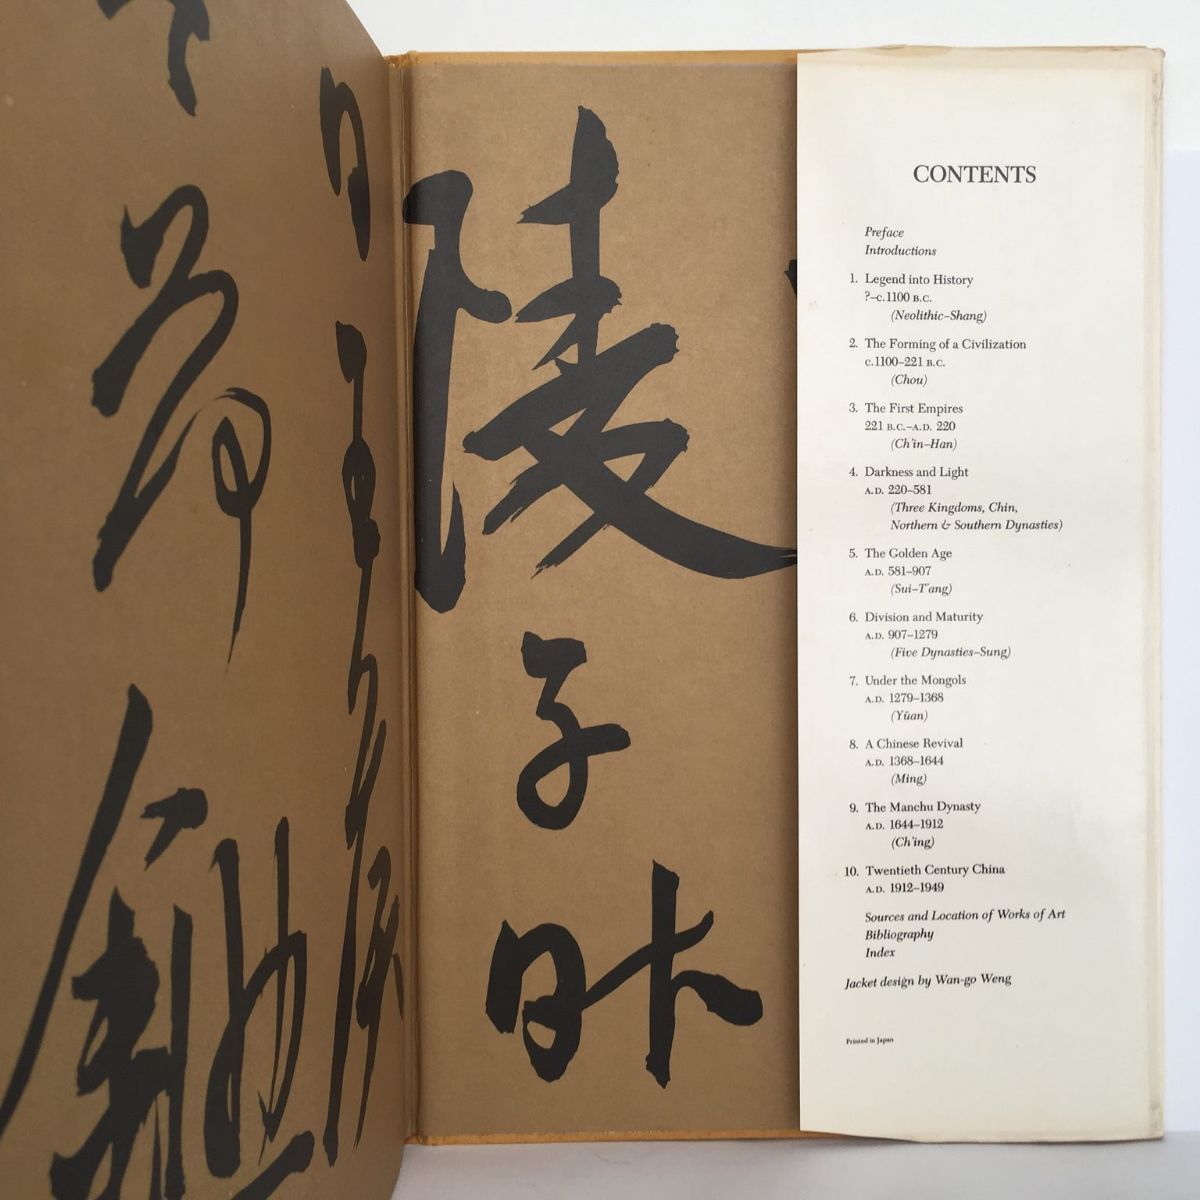 陵
子
CONTENTS
Preface
Introductions
1. Legend into History
?–c.1100 B.C.
(Neolithic–Shang)
2. The Forming of a Civilization
c.1100–221 B.C.
(Chou)
3. The First Empires
221 B.C.–A.D. 220
(Ch'in–Han)
4. Darkness and Light
A.D. 220–581
(Three Kingdoms, Chin,
Northern & Southern Dynasties)
5. The Golden Age
A.D. 581–907
(Sui–T'ang)
6. Division and Maturity
A.D. 907–1279
(Five Dynasties–Sung)
7. Under the Mongols
A.D. 1279–1368
(Yüan)
8. A Chinese Revival
A.D. 1368–1644
(Ming)
9. The Manchu Dynasty
A.D. 1644–1912
(Ch'ing)
10. Twentieth Century China
A.D. 1912–1949
Sources and Location of Works of Art
Bibliography
Index
Jacket design by Wan-go Weng
Printed in Japan